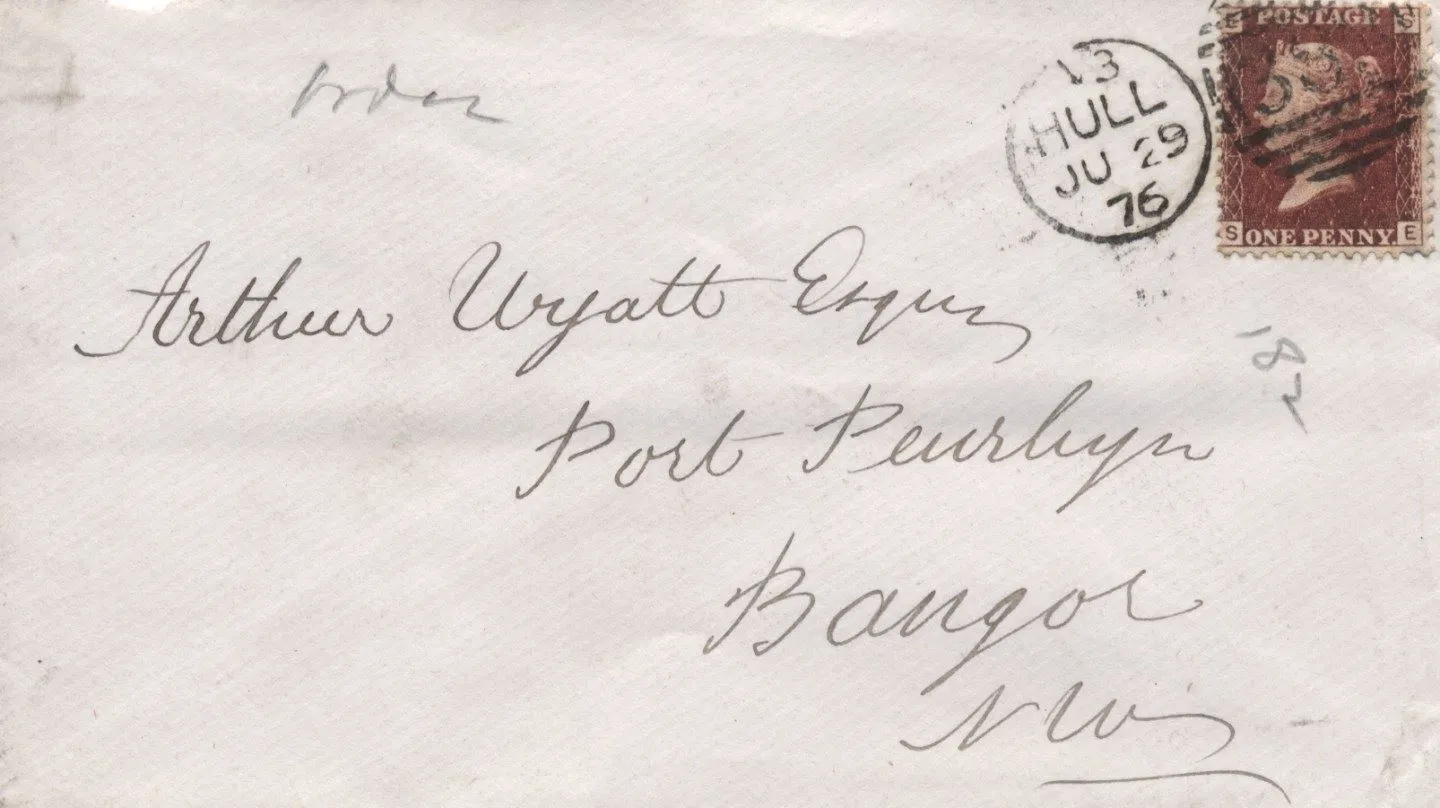 order
13
HULL
JU 29
76
E POSTAGE S
S ONE PENNY. E
Arthur Wyatt Esqur
Port Penrhyn
Bangor
NW